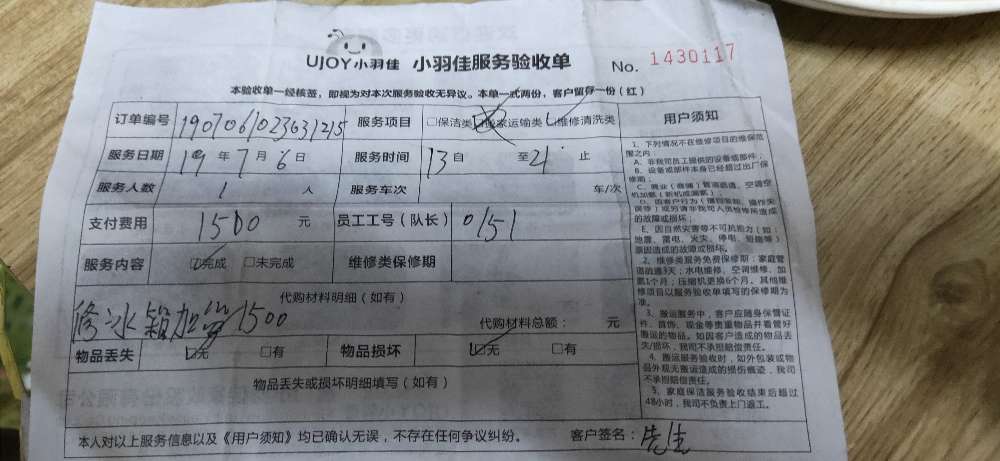 UJOY小羽佳 小羽佳服务验收单 No. 1430117
本验收单一经核签，即视为对本次服务验收无异议。本单一式两份，客户留存一份（红）
订单编号 190706102363121​5 服务项目 □保洁类 □搬家运输类 □维修清洗类
服务日期 19 年 7 月 6 日 服务时间 13 自 至 21 止
服务人数 1 人 服务车次 车/次
支付费用 1500 元 员工工号（队长） 0151
服务内容 □完成 □未完成 维修类保修期
代购材料明细（如有）
修冰箱加 1500 代购材料总额： 元
物品丢失 □无 □有 物品损坏 □无 □有
物品丢失或损坏明细填写（如有）
本人对以上服务信息以及《用户须知》均已确认无误，不存在任何争议纠纷。 客户签名：先生
用户须知
1、下列情况不在维修项目的维保范
围之内：
A、非我司员工提供的设备或部件；
B、设备或部件本身已经超过出厂保
修期；
C、商业（商铺）管道疏通、空调空
机加氟（新机或漏氟）；
的故障或损坏；
E、因自然灾害等不可抗能力（如：
地震、雷电、火灾、停电、短路等）
原因造成的故障或损坏。
2、维修类服务免费保修期：家庭管
道疏通3天；水电维修、空调维修、加
氟1个月；压缩机更换6个月。其他维
修项目以服务验收单填写的保修期为
准。
3、搬运服务中，客户应随身保管证
件、首饰、现金等贵重物品并看管好
搬运的物品。如因客户造成的物品丢
失/损坏，我司不承担赔偿责任。
4、搬运服务验收时，如外包装或物
品外观无搬运造成的损伤痕迹，我司
不承担赔偿责任。
5、家庭保洁服务验收结束后超过
48小时，我司不负责上门返工。